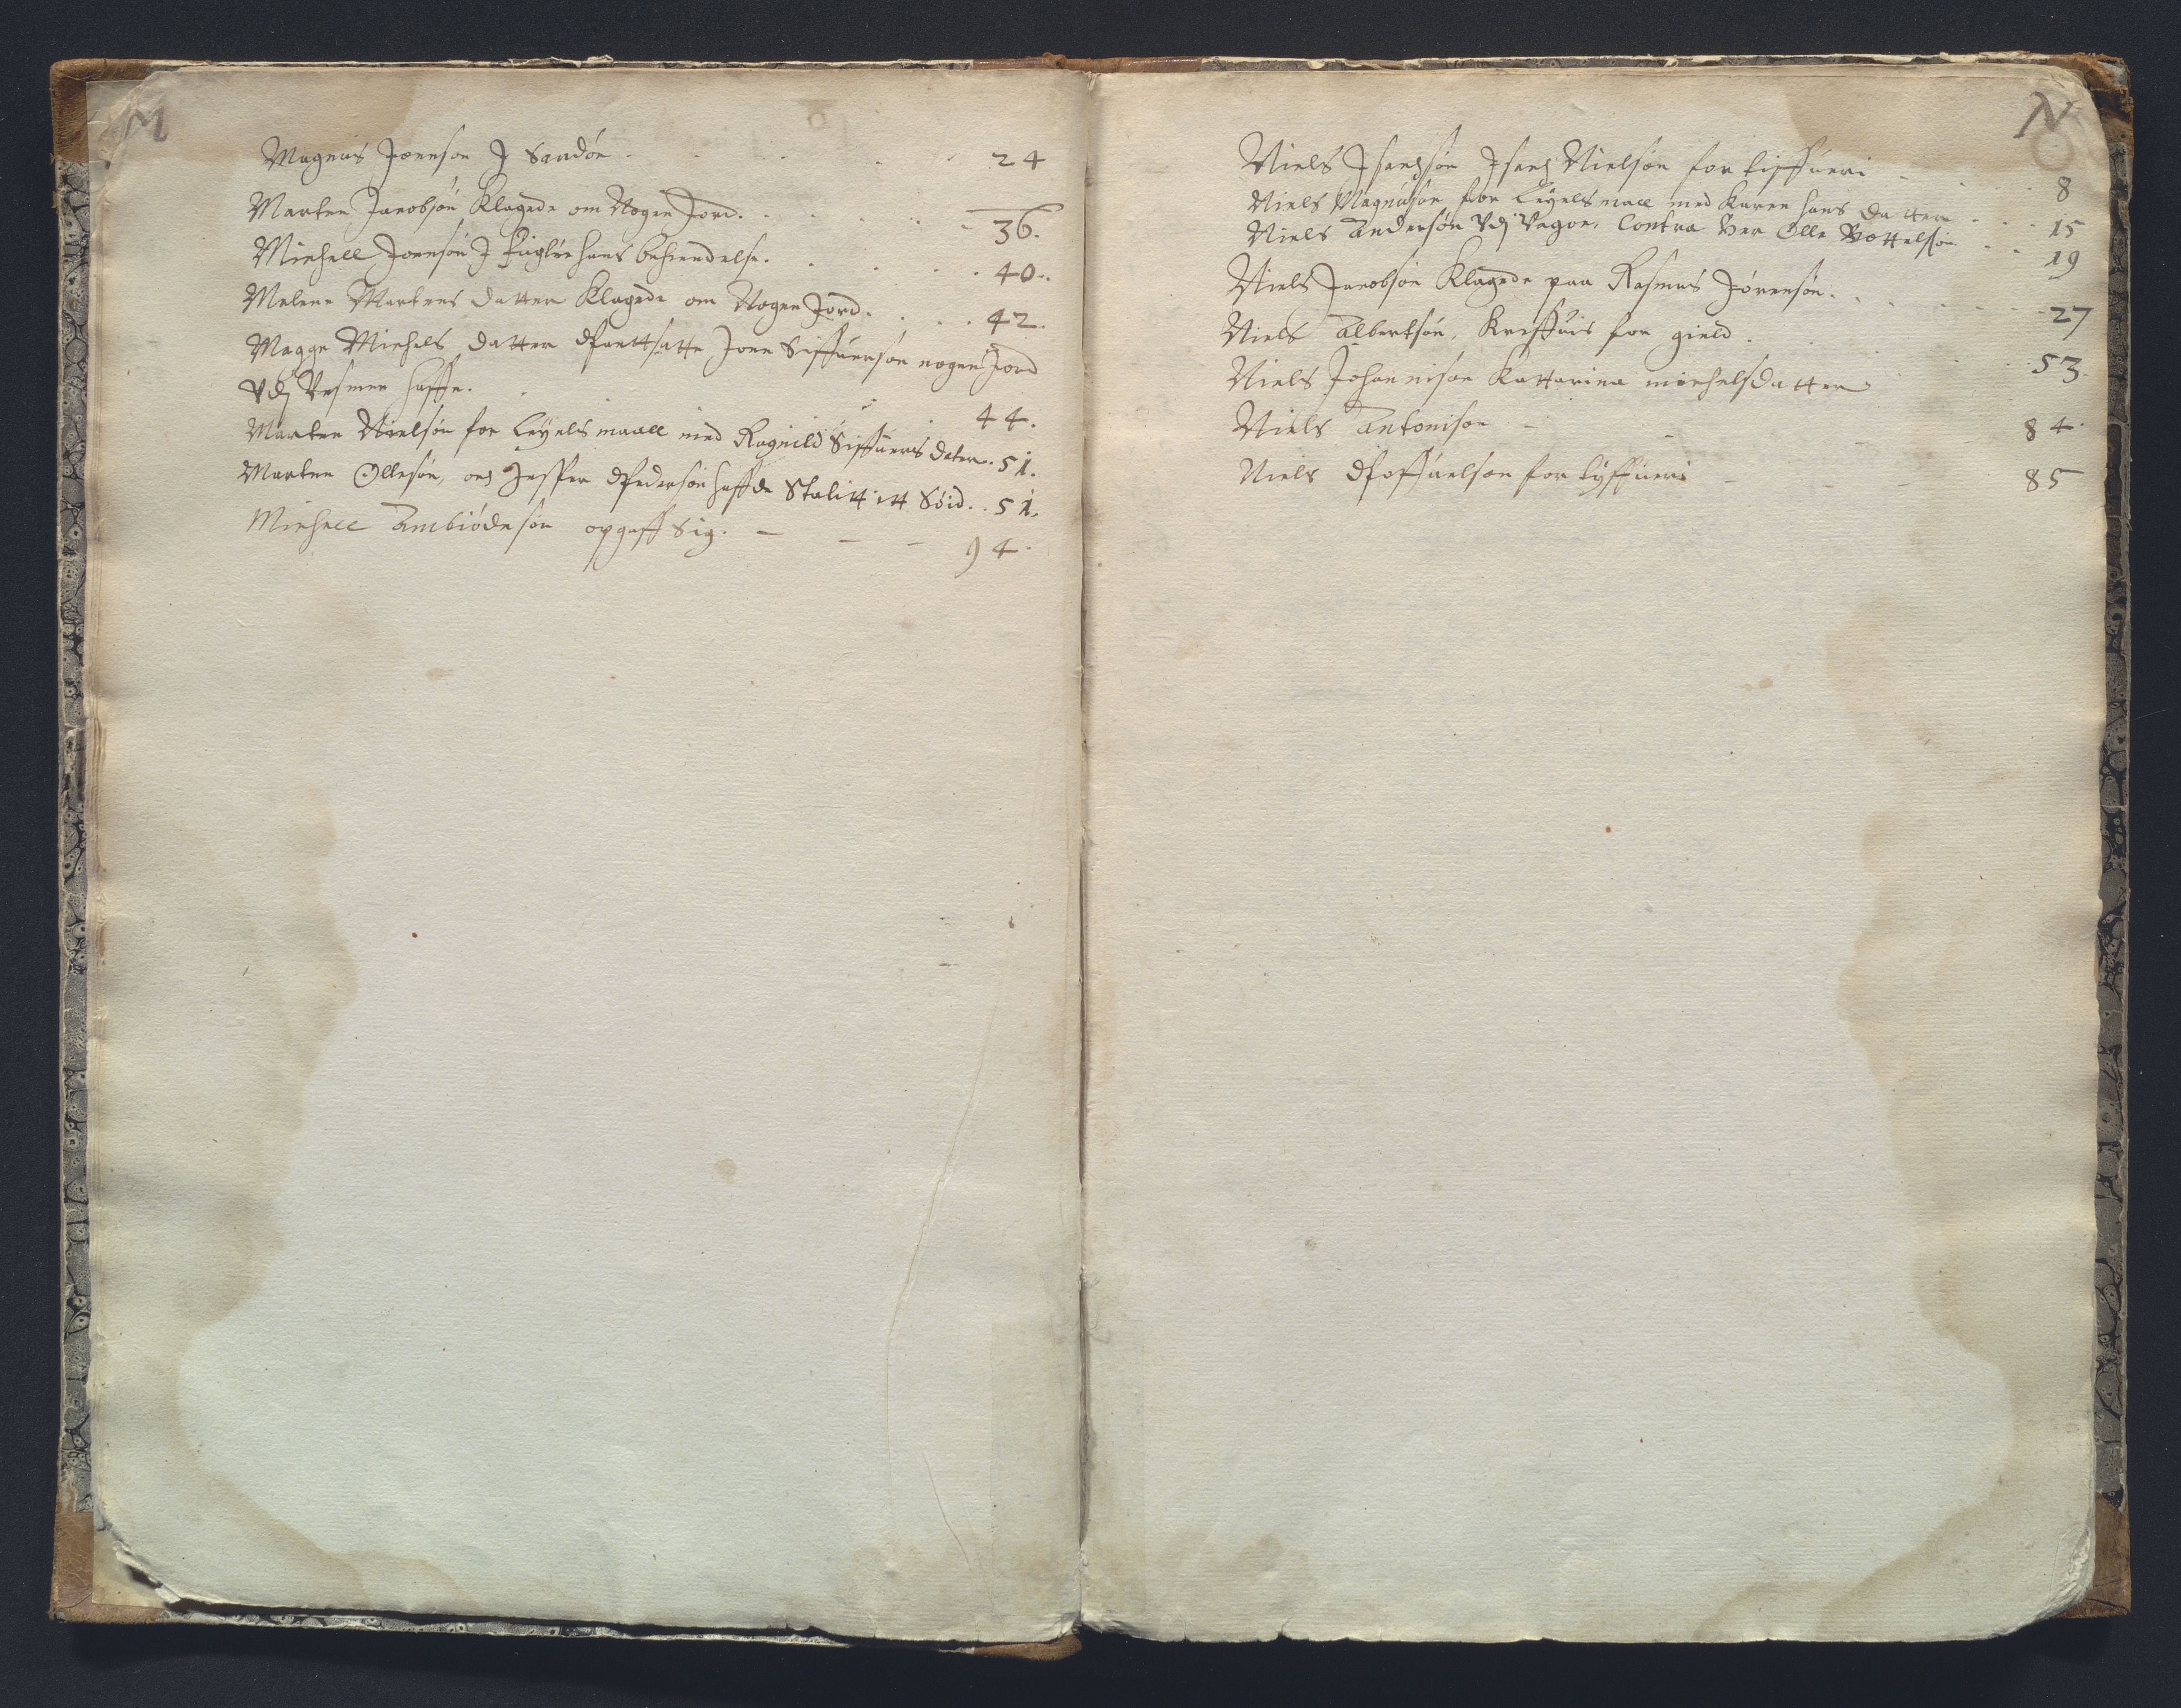 M
Magnus Joensøn J Sandøe 24
Marten Jacobsøn Klagede om Nogen Jord. 36.
Michell Joensøn J Fugløe hans bekiendelse. 40.
Melene Martens datter Klagede om Nogen Jord. 42.
Magge Michels datter Pfanttsatte Joen Siffuersøn nogen Jord
Vdj Vesmen haffn. 44.
Marten Nielsøn for Leyelsmaall med Ragnild Siffuers dater. 51.
Marten Ollesøn, och Jesper Pedersøn haffde Stalitt itt Søid. 51.
Michell Ambiødesøn opgaff Sig. 94.
N
Niels Isachsøn Isach Nielsøn for tiffueri 8
Niels Magnusøn for Leyelsmall med Karen hans datter 15
Niels Andersøn Vdj Vagoe, Contra Her Olle Bottelsøn 19
Niels Jacobsøn Klagede paa Rasmus Jørensøn. 27
Niels Albertsøn, Kreffuis for gield. 53.
Niels Johannisøn Kattarina michelsdatter
Niels Antonisøn 84.
Niels Poffuelsøn for tyffueri 85